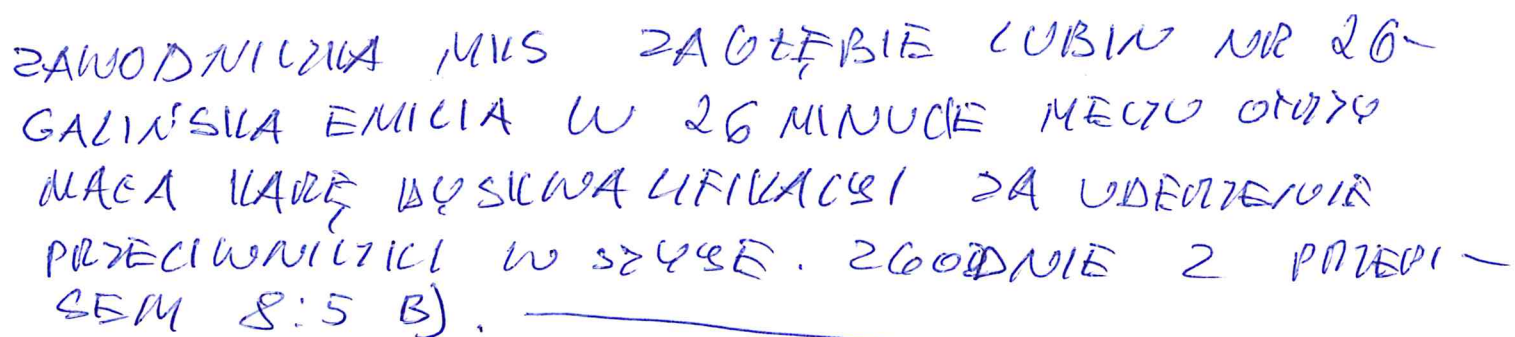 ZAWODNICZKA MKS ZAGŁĘBIE LUBIN NR 26-
GALIŃSKA EMILIA W 26 MINUCIE MECZU OTRZY
MAŁA KARĘ DYSKWALIFIKACJI ZA UDERZENIE
PRZECIWNICZKI W SZYJĘ. ZGODNIE Z PRZEPI-
SEM 8:5 B).